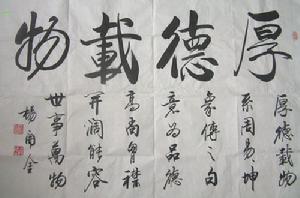 厚德載物
厚德載物
系周易、坤
象传之句
意为品德
高尚胃襟
开阔能容
世事萬物
楊角金